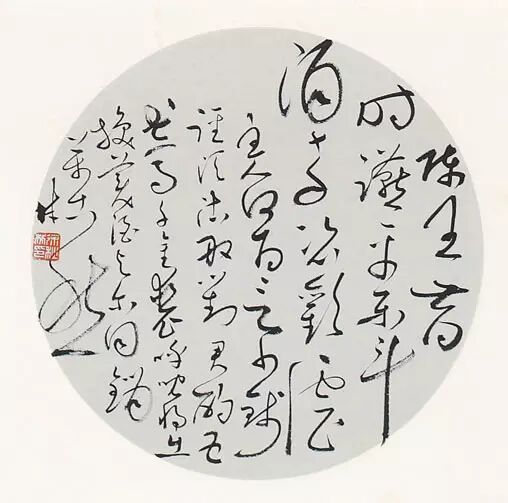 陈王昔
时讌平乐斗
酒十千恣歡谑
主人何为言少钱
径须沽取对君酌五
花马千金裘呼儿将出
换美酒与尔同销
万古愁
林